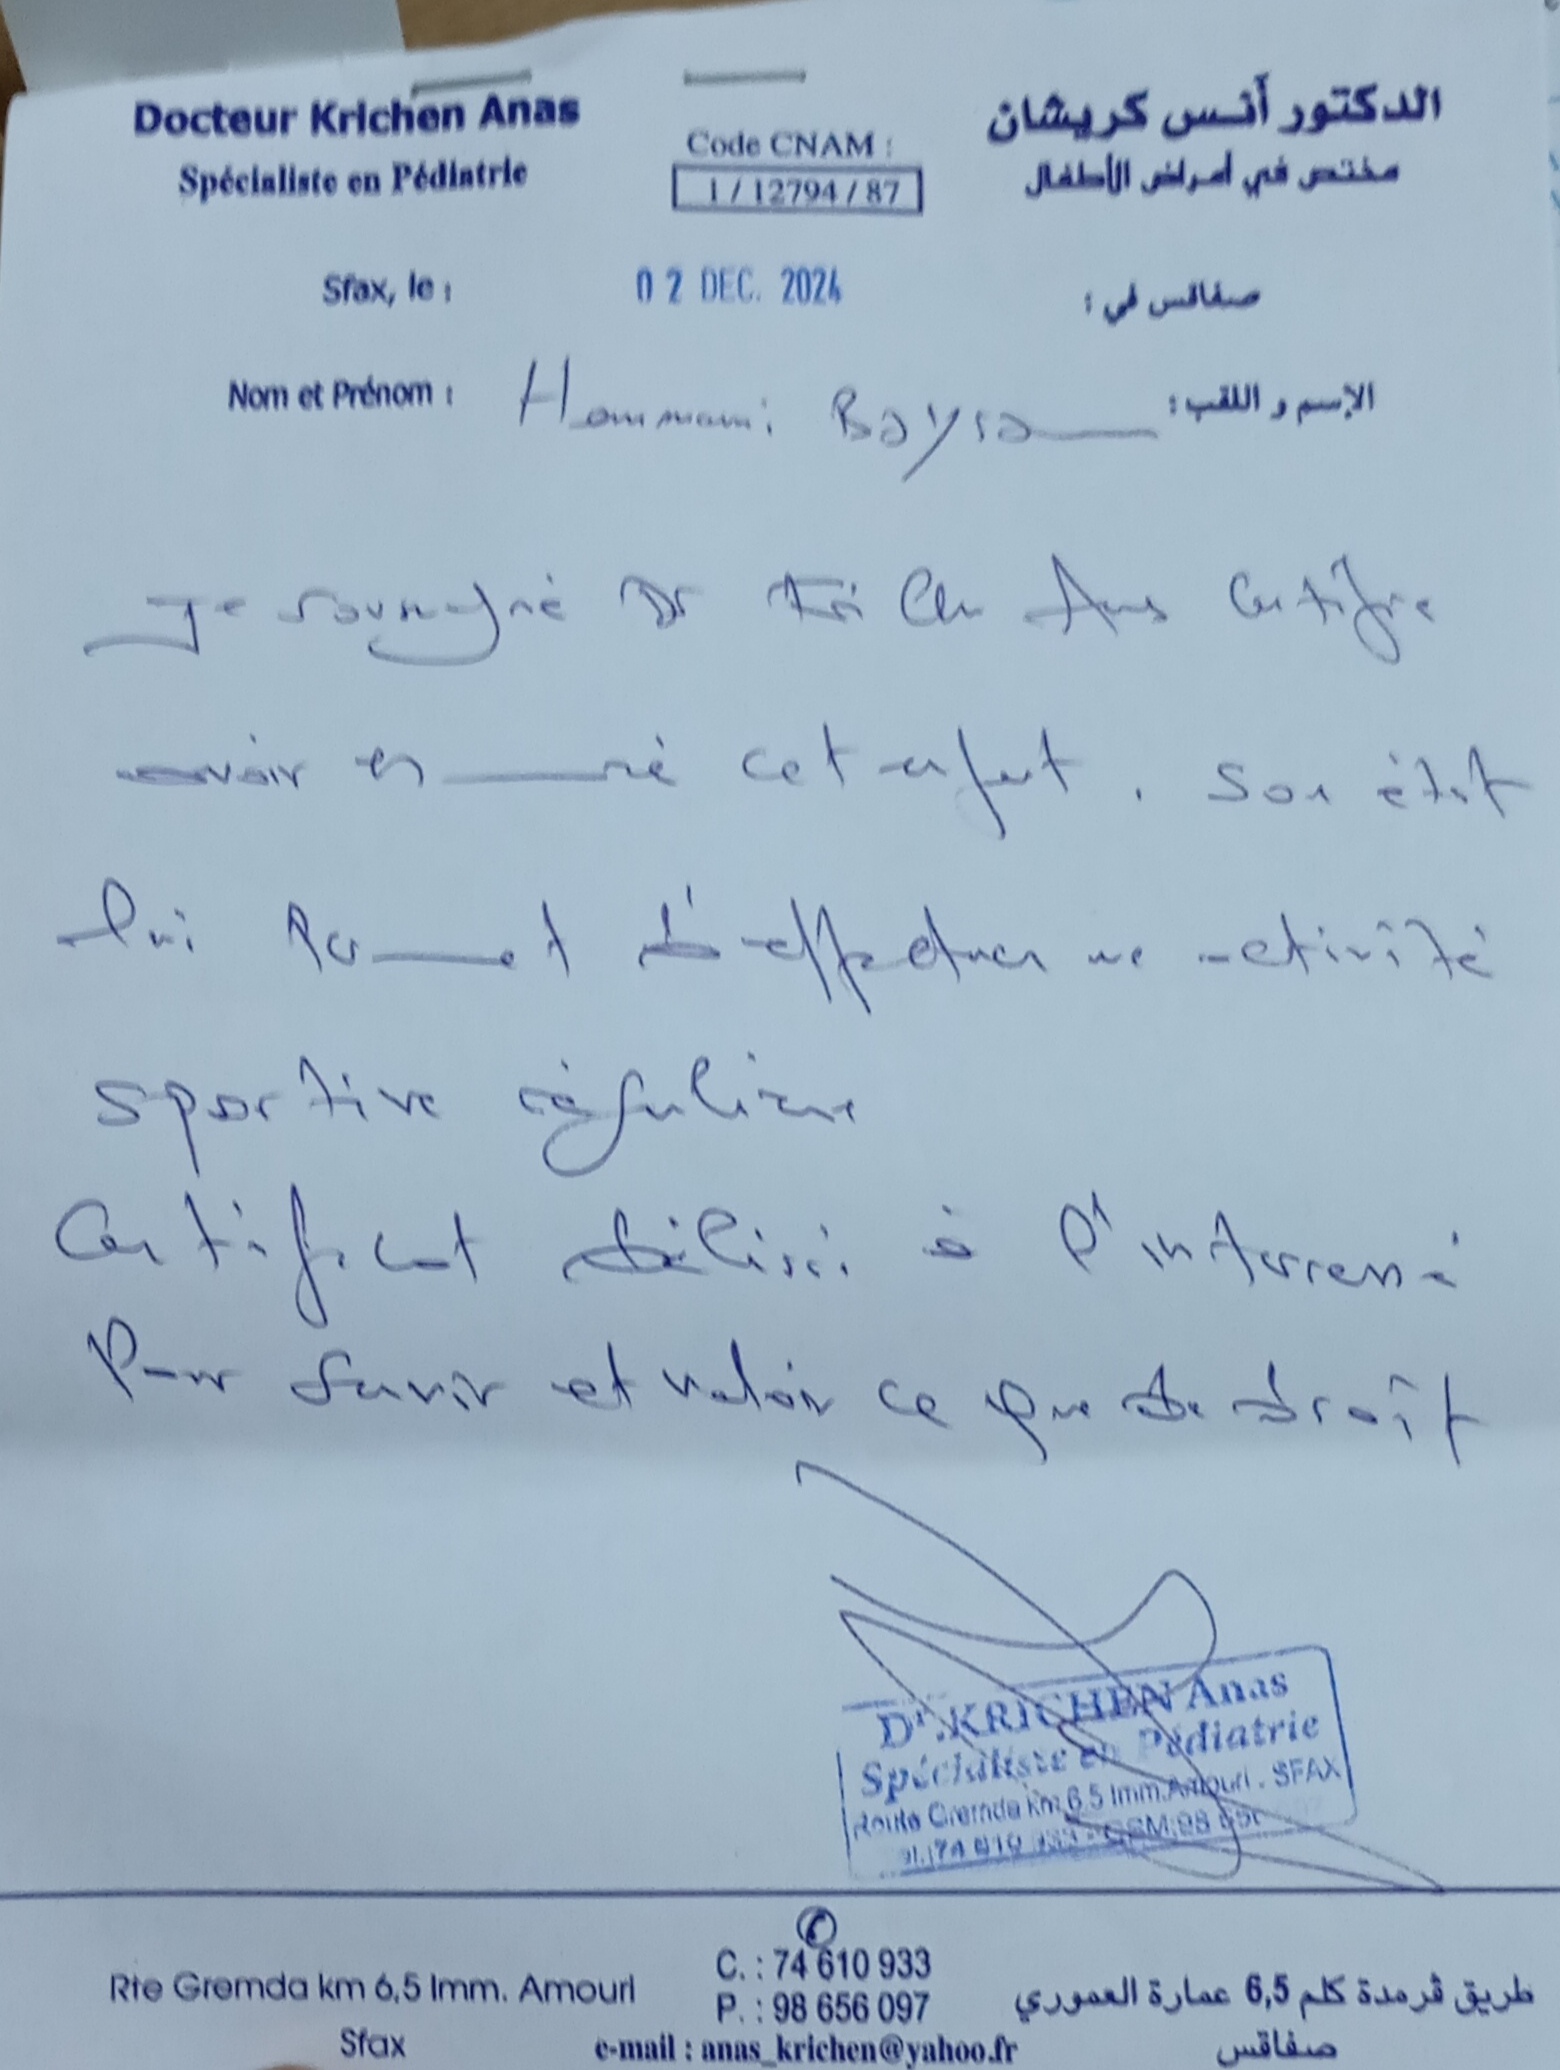 Docteur Krichen Anas
Spécialiste en Pédiatrie
Code CNAM :
1 / 12794 / 87
الدكتور أنس كريشان
مختص في أمراض الأطفال
Sfax, le : 02 DEC. 2024 صفاقس في :
Nom et Prénom : Hammami Baysa الإسم و اللقب :
Je soussigné Dr Krichen Anas Certifie
avoir examiné cet enfant. Son état
lui permet d'effectuer une activité
sportive régulière
Certificat délivré à l'interressé
Pour servir et valoir ce que de droit
Dr. KRICHEN Anas
Spécialiste en Pédiatrie
Route Gremda km 6,5 Imm. Amouri . SFAX
74 610 933 - GSM: 98 656
Rte Gremda km 6,5 Imm. Amouri
Sfax
C. : 74 610 933
P. : 98 656 097
e-mail : anas_krichen@yahoo.fr
طريق ڤرمدة كلم 6,5 عمارة العموري
صفاقس